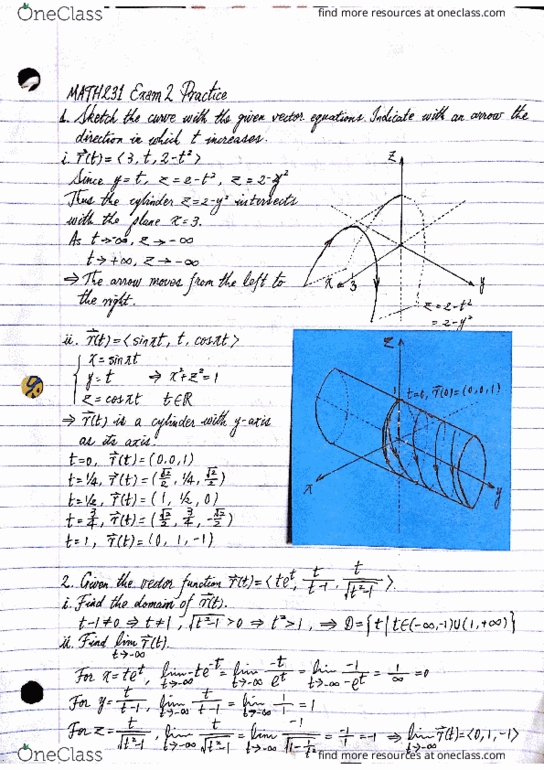 OneClass
find more resources at oneclass.com
MATH231 Exam 2 Practice
1. Sketch the curve with the given vector equations. Indicate with an arrow the
direction in which t increases.
i. r⃗(t) = ⟨3, t, 2-t²⟩
Since y=t, z=2-t², z=2-y²
Thus the cylinder z=2-y² intersects
with the plane x=3.
As t→-∞, z→-∞
t→+∞, z→-∞
⇒ The arrow moves from the left to
the right.
z
x 3
y
z=2-t²
=2-y²
ii. r⃗(t) = ⟨sinπt, t, cosπt⟩
{ x=sinπt
y=t ⇒ x²+z²=1
z=cosπt t∈R
⇒ r⃗(t) is a cylinder with y-axis
as its axis.
t=0, r⃗(t)=(0.0,1)
t=1/4, r⃗(t)=(√2/2, 1/4, √2/2)
t=1/2, r⃗(t)=(1, 1/2, 0)
t=3/4, r⃗(t)=(√2/2, 3/4, -√2/2)
t=1, r⃗(t)=(0, 1, -1)
z
1
t=0, r⃗(0)=(0,0,1)
x
y
2. Given the vector function r⃗(t)=⟨te^t, t/(t-1), t/√(t²-1)⟩.
i. Find the domain of r⃗(t).
t-1≠0 ⇒ t≠1, √(t²-1)>0 ⇒ t²>1, ⇒ D={t|t∈(-∞,-1)∪(1,+∞)}
ii. Find lim t→-∞ r⃗(t).
For x=te^t, lim t→-∞ te^t = lim t→-∞ -t/e^t = lim t→-∞ -1/-e^t = 1/∞ = 0
For y=t/(t-1), lim t→-∞ t/(t-1) = lim t→-∞ 1/1 = 1
For z=t/√(t²-1), lim t→-∞ t/√(t²-1) = lim t→-∞ -1/√(1-1/t²) = -1/1 = -1 ⇒ lim t→-∞ r⃗(t)=⟨0,1,-1⟩
OneClass
find more resources at oneclass.com